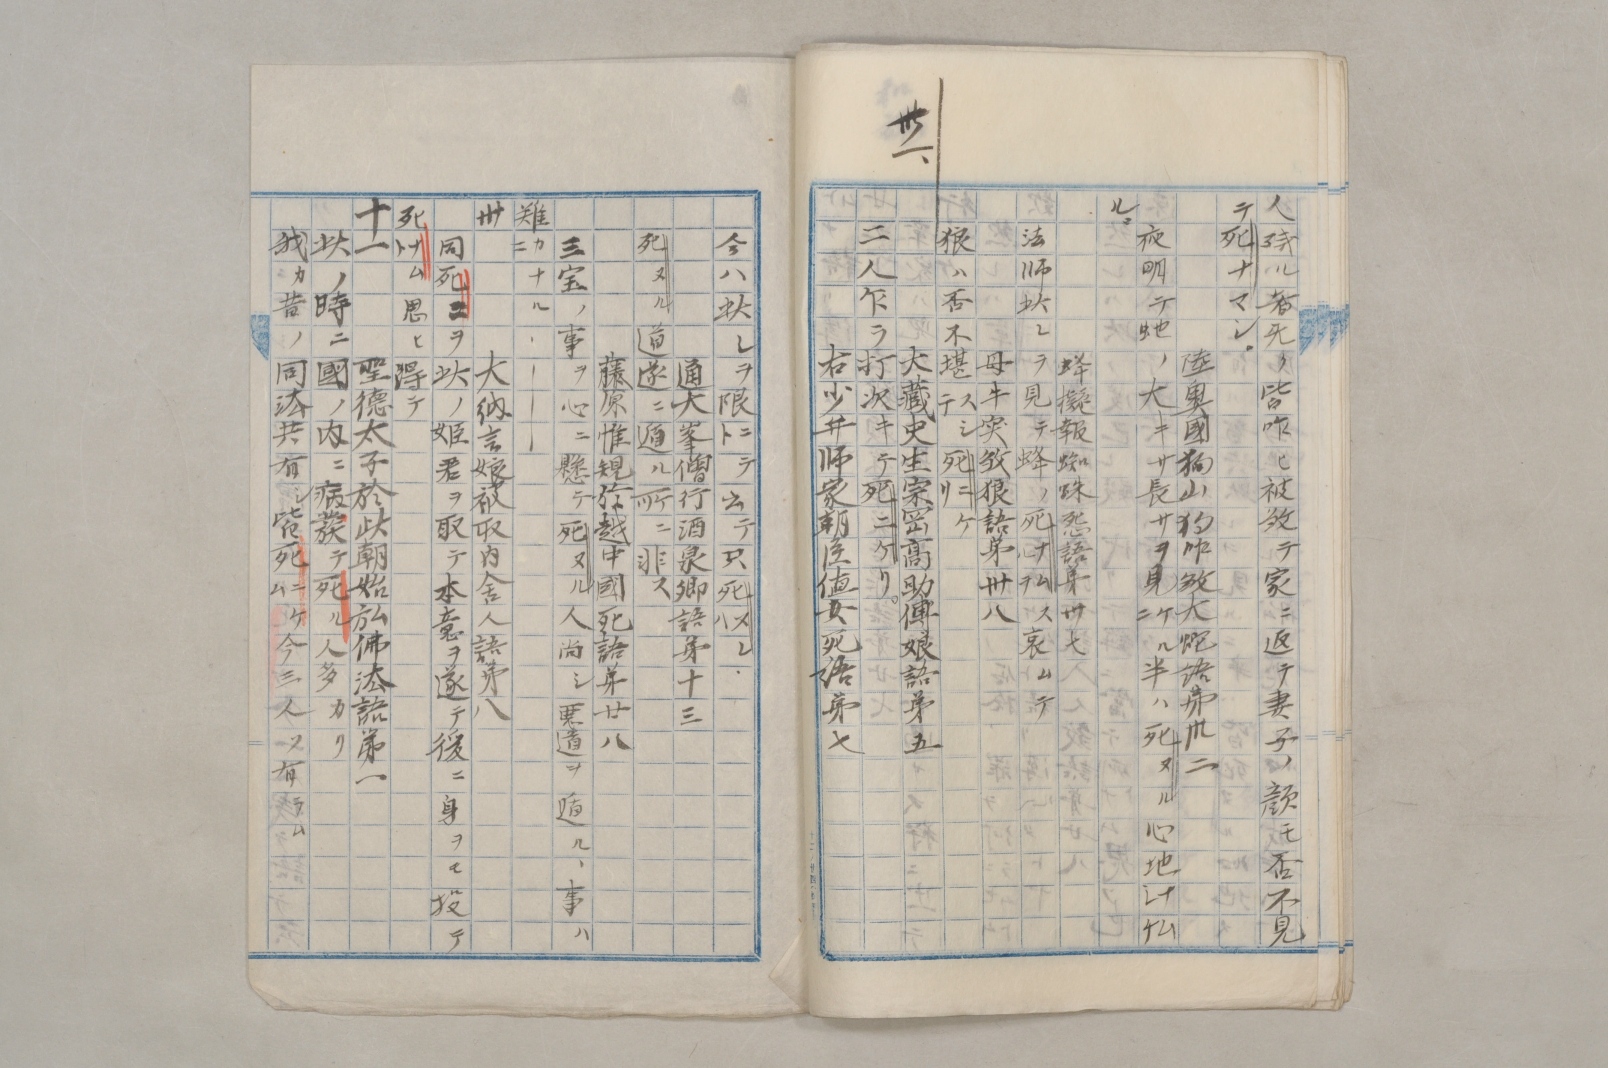 人残ル者死ヌ皆咋ヒ被敓テ家ニ返テ妻子ノ顔モ否不見
テ死ナマシ。
陸奥國狗山狗咋敓大虵語第卅二
夜明テ虵ノ大キサ長サヲ見ケルニ半ハ死ヌル心地ナムケ
ル。
蜂擬報蜘蛛怨語第卅七
法師此レヲ見テ蜂ノ死ナムスルヲ哀ムテ
母牛突敓狼語第卅八
狼ハ否不堪スシテ死ニケリ
卅一、
大藏史生宗岡高助傅娘語第五
二人乍ラ打次キテ死ニケリ。
右少弁師家朝臣値女死語第七
今ハ此レヲ限ニテトテ只死ヌレハ
通大峯僧行酒泉郷語第十三
死ヌル道遂ニ遁ル所ニ非ス
藤原惟規於越中國死語第廿八
三宝ノ事ヲ心ニ懸テ死ヌル人尚シ悪道ヲ遁ル、事ハ
難カナルニ、ーーー
卅 大納言娘被取内舎人語第八
同死ニヲ此ノ姫君ヲ取テ本意ヲ遂テ後ニ身ヲモ投テ
死ナムト思ヒ得テ
十一 聖徳太子於此朝始弘佛法語第一
此ノ時ニ國ノ内ニ病發テ死ル人多カリ
我カ昔ノ同法共有シ皆死ニケム今三人ヌ有ラム